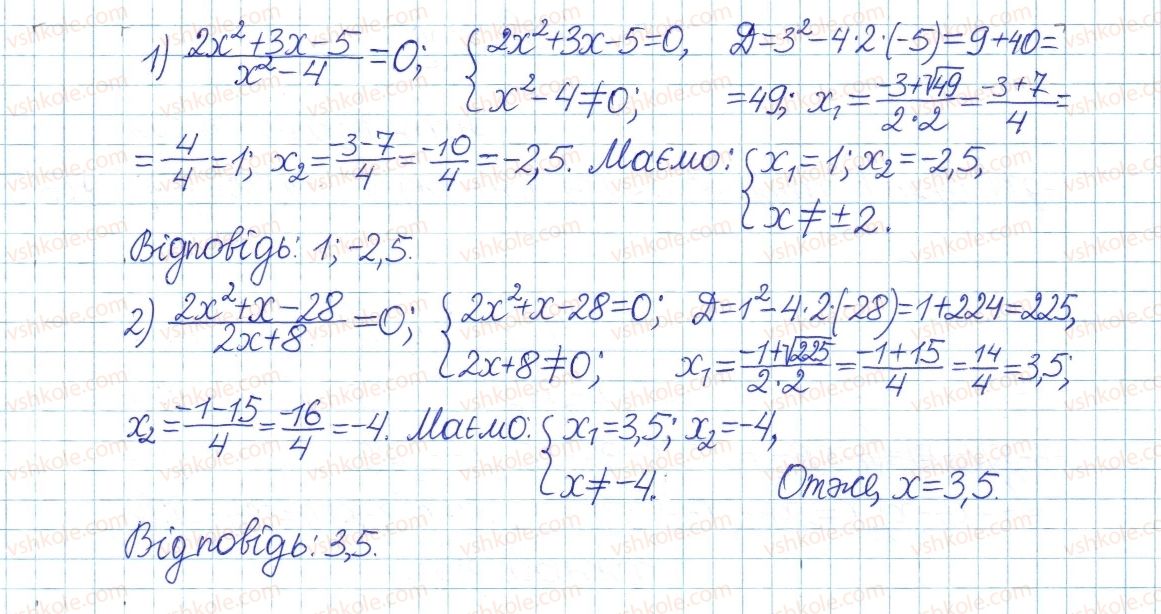 1) (2x²+3x−5)/(x²−4) = 0; { 2x²+3x−5=0, x²−4≠0; Д=3²−4·2·(−5)=9+40=
=49; x₁=(−3+√49)/(2·2)=(−3+7)/4=
=4/4=1; x₂=(−3−7)/4=−10/4=−2,5. Маємо: { x₁=1; x₂=−2,5, x≠±2.
Відповідь: 1; −2,5.
2) (2x²+x−28)/(2x+8)=0; { 2x²+x−28=0; 2x+8≠0; Д=1²−4·2·(−28)=1+224=225,
x₁=(−1+√225)/(2·2)=(−1+15)/4=14/4=3,5;
x₂=(−1−15)/4=−16/4=−4. Маємо: { x₁=3,5; x₂=−4, x≠−4. Отже, x=3,5.
Відповідь: 3,5.